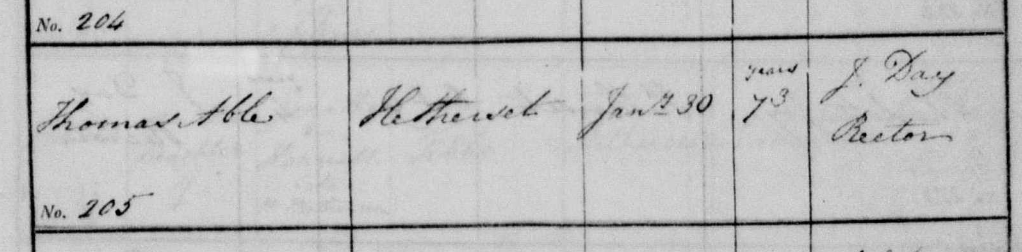 No. 204
Thomas Able Hetherset Jany. 30 years 73 J. Day
Rector
No. 205